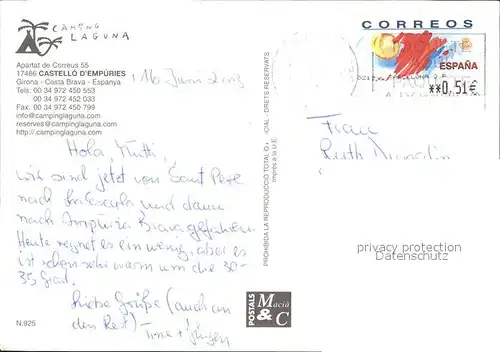 CAMPING
LAGUNA
Apartat de Correus 55
17486 CASTELLÓ D'EMPÚRIES
Girona - Costa Brava - Espanya
Tels: 00 34 972 450 553
00 34 972 452 033
Fax: 00 34 972 450 799
info@campinglaguna.com
reserves@campinglaguna.com
http://.campinglaguna.com
16. Juni 2003
Hola, Mutti,
wir sind jetzt von Sant Pere
nach und dann
nach Ampuria Brava gefahren.
Heute regnet es ein wenig, aber es
ist schon sehr warm um die 30-
35 Grad.
Liebe Grüße (auch an
den Rest) -
N.925
PROHIBIDA LA REPRODUCCIÓ TOTAL O CIAL DRETS RESERVATS
Imprès a la U.E.
POSTALS
Macià
& C
CORREOS
ESPAÑA
**0,51€
Frau
Ruth
privacy protection
Datenschutz